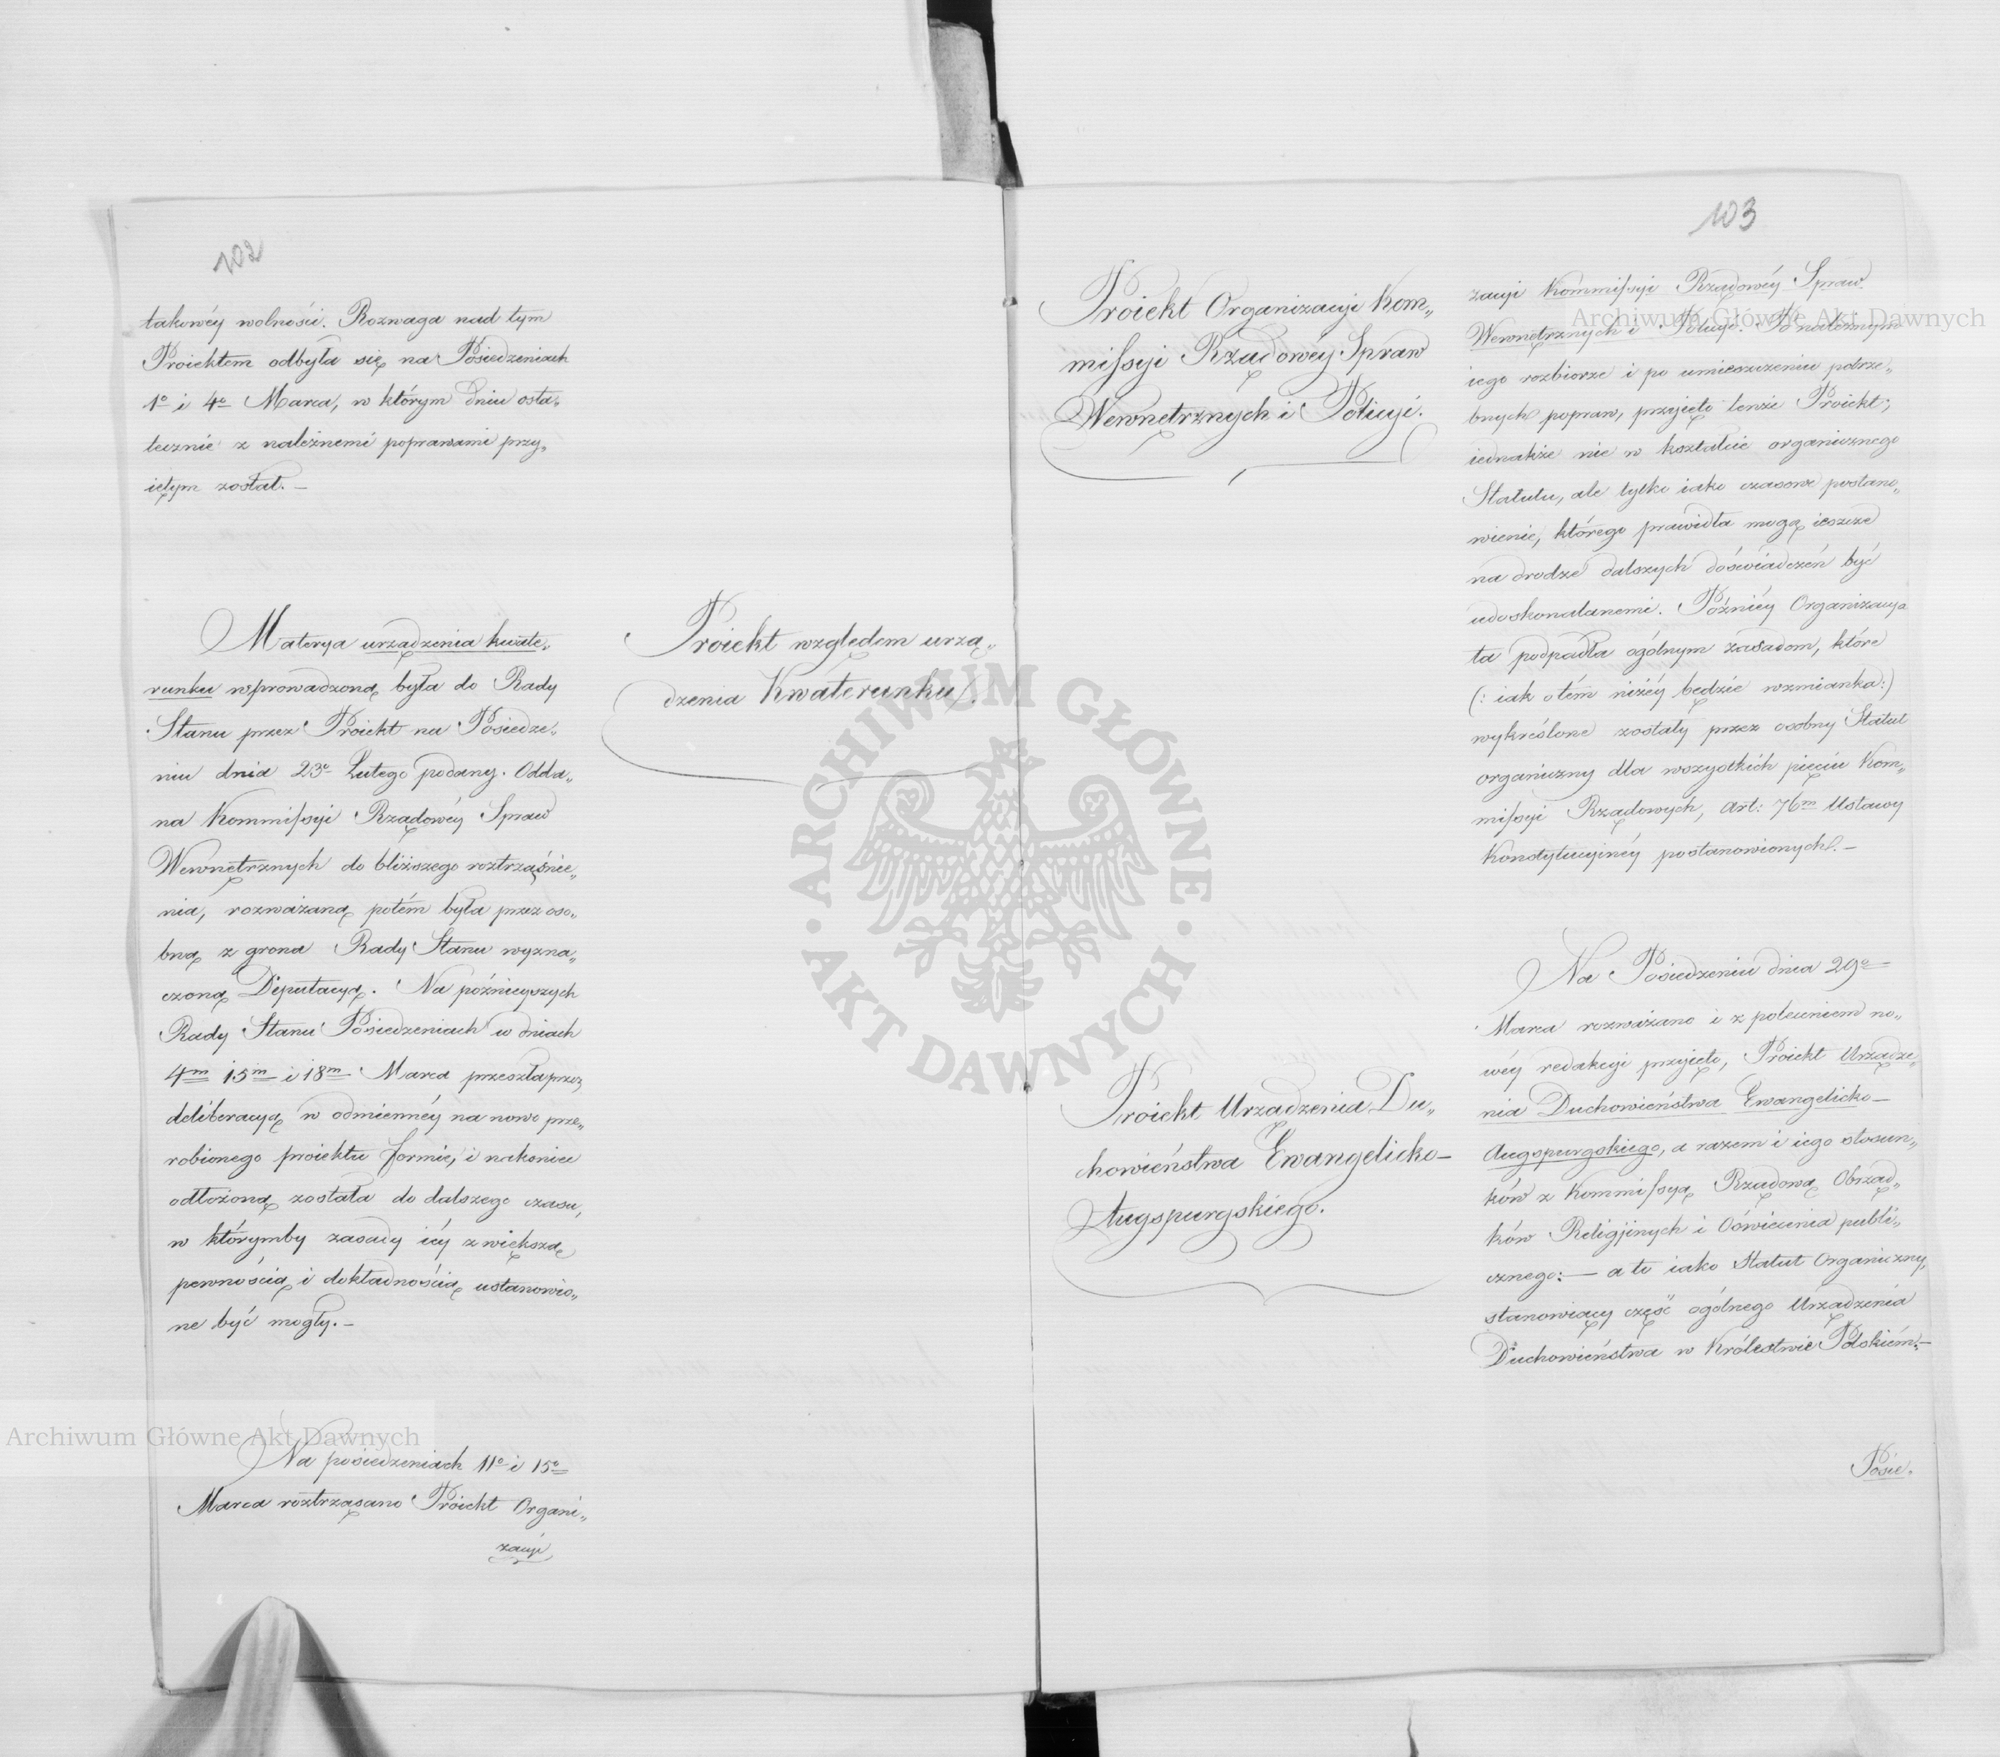 102
takowéy wolności. Rozwaga nad tym
Proiektem odbyła się na Posiedzeniach
1º i 4º Marca, w którym dniu osta„
tecznie z należnemi poprawami przy„
iętym został.—
Materya urządzenia kwate„
runku wprowadzoną była do Rady
Stanu przez Proiekt na Posiedze„
niu dnia 23º Lutego podany. Odda„
na Kommissyi Rządowéy Spraw
Wewnętrznych do bliższego roztrząśnie„
nia, rozważaną potém była przez oso„
bną z grona Rady Stanu wyzna„
czoną Deputacyą. Na późnieyszych
Rady Stanu Posiedzeniach w dniach
4m 15m i 18m Marca przeszła przez
deliberacyą w odmiennéy na nowo prze„
robionego proiektu formie, i nakoniec
odłożoną została do dalszego czasu,
w którymby zasady iéy z większą
pewnością i dokładnością ustanowio„
ne być mogły.—
Na posiedzeniach 11º i 15º
Marca roztrząsano Proiekt Organi„
zacyi
Proiekt względem urzą„
dzenia Kwaterunku.
103
Proiekt Organizacyi Kom„
missyi Rządowéy Spraw
Wewnętrznych i Policyi.
Proiekt Urządzenia Du„
chowieństwa Ewangelicko—
Augspurgskiego.
zacyi Kommissyi Rządowéy Spraw
Wewnętrznych i Policyi. Po należnym
iego rozbiorze i po umieszczeniu potrze„
bnych popraw, przyięto tenże Proiekt;
iednakże nie w kształcie organicznego
Statutu, ale tylko iako czasowe postano„
wienie, którego prawidła mogą ieszcze
na drodze dalszych doświadczeń być
udoskonalanemi. Późniéy Organizacya
ta podpadła ogólnym zasadom, które
(: iak o tém niżéy będzie wzmianka:)
wykreślone zostały przez osobny Statut
organiczny dla wszystkich pięciu Kom„
missyi Rządowych, art: 76m Ustawy
Konstytucyinéy postanowionych.—
Na Posiedzeniu dnia 29º
Marca rozważano i z poleceniem no„
wéy redakcyi przyięto, Proiekt Urządze„
nia Duchowieństwa Ewangelicko—
Augspurgskiego, a razem i iego stosun„
ków z Kommissyą Rządową Obrząd„
ków Religijnych i Oświecenia publi„
cznego:— a to iako Statut Organiczny,
stanowiący część ogólnego Urządzenia
Duchowieństwa w Królestwie Polskiém.—
Posie.
Archiwum Główne Akt Dawnych
Archiwum Główne Akt Dawnych
ARCHIWUM GŁÓWNE · AKT DAWNYCH ·